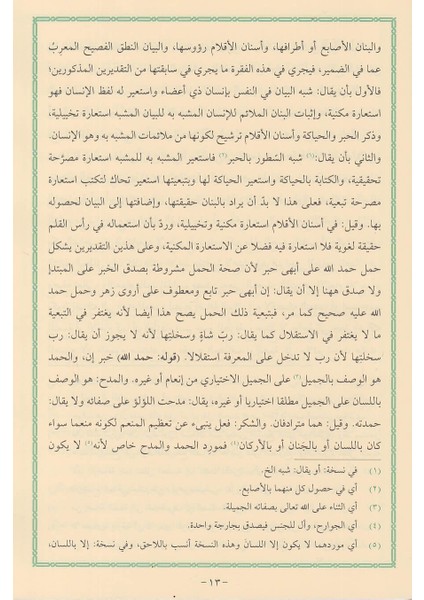 والبنان الأصابع أو أطرافها، وأسنان الأقلام رؤوسها، والبيان النطق الفصيح المعرب
عما في الضمير، فيجري في هذه الفقرة ما يجري في سابقتها من التقديرين المذكورين؛
فالأول بأن يقال: شبه البيان في النفس بإنسان ذي أعضاء واستعير له لفظ الإنسان فهو
استعارة مكنية، وإثبات البنان الملائم للإنسان المشبه به للبيان المشبه استعارة تخييلية،
وذكر الحبر والحياكة وأسنان الأقلام ترشيح لكونها من ملائمات المشبه به وهو الإنسان.
والثاني بأن يقال:(١) شبه السطور بالحبر(٢) فاستعير المشبه به للمشبه استعارة مصرّحة
تحقيقية، والكتابة بالحياكة واستعير الحياكة لها وبتبعيتها استعير تحاك لتكتب استعارة
مصرحة تبعية، فعلى هذا لا بدّ أن يراد بالبنان حقيقتها، وإضافتها إلى البيان لحصوله
بها. وقيل: في أسنان الأقلام استعارة مكنية وتخييلية، وردّ بأن استعماله في رأس القلم
حقيقة لغوية فلا استعارة فيه فضلا عن الاستعارة المكنية، وعلى هذين التقديرين يشكل
حمل حمد الله على أبهى حبر لأن صحة الحمل مشروطة بصدق الخبر على المبتدإ
ولا صدق ههنا إلا أن يقال: إن أبهى حبر تابع ومعطوف على أروى زهر وحمل حمد
الله عليه صحيح كما مر، فبتبعية ذلك الحمل يصح هذا أيضا لأنه يغتفر في التبعية
ما لا يغتفر في الاستقلال كما يقال: ربّ شاةٍ وسخلتها لأنه لا يجوز أن يقال: رب
سخلتها لأن رب لا تدخل على المعرفة استقلالا. (قوله: حمد الله) خبر إن، والحمد
هو الوصف بالجميل(٣) على الجميل الاختياري من إنعام أو غيره. والمدح: هو الوصف
باللسان على الجميل مطلقا اختياريا أو غيره، يقال: مدحت اللؤلؤ على صفائه ولا يقال:
حمدته. وقيل: هما مترادفان. والشكر: فعل ينبىء عن تعظيم المنعم لكونه منعما سواء
كان باللسان أو بالجَنان أو بالأركان(٤) فمورِد الحمد والمدح خاص لأنه(٥) لا يكون
(١) في نسخة: أو يقال: شبه الخ.
(٢) أي في حصول كل منهما بالأصابع.
(٣) أي الثناء على الله تعالى بصفاته الجميلة.
(٤) أي الجوارح، وأل للجنس فيصدق بجارحة واحدة.
(٥) أي موردهما لا يكون إلا اللسان وهذه النسخة أنسب باللاحق، وفي نسخة: إلا باللسان،
-١٣-